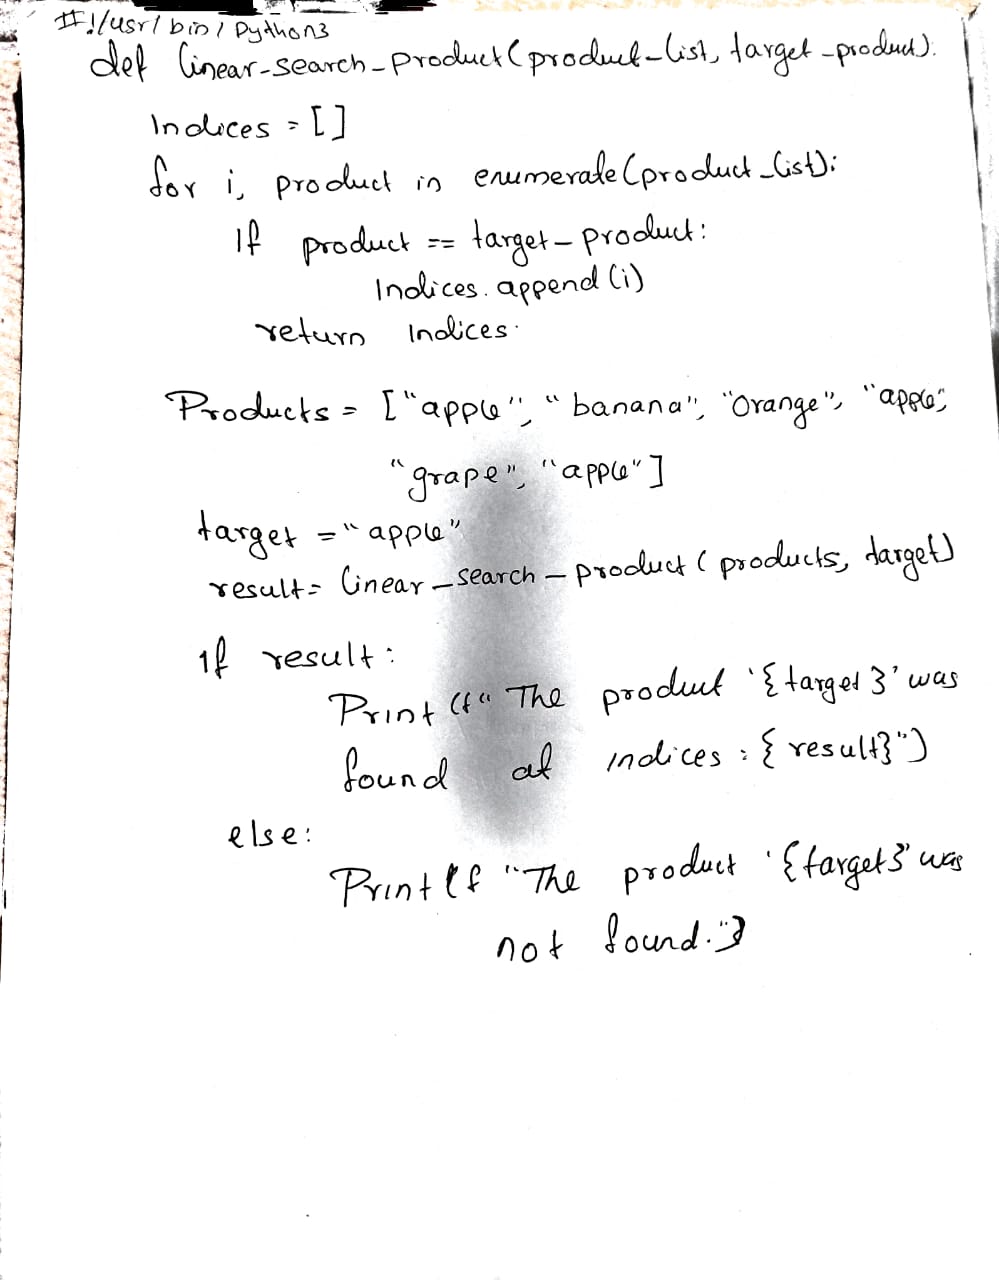 #!/usr/bin/python3
def linear-search-product(product-list, target-product):
Indices = []
for i, product in enumerate(product_list):
If product == target-product:
Indices.append(i)
return Indices
Products = ["apple", "banana", "orange", "apple",
"grape", "apple"]
target = "apple"
result = linear_search-product(products, target)
if result:
Print(f"The product '{target}' was
found at indices: {result}")
else:
Print(f"The product '{target}' was
not found.")